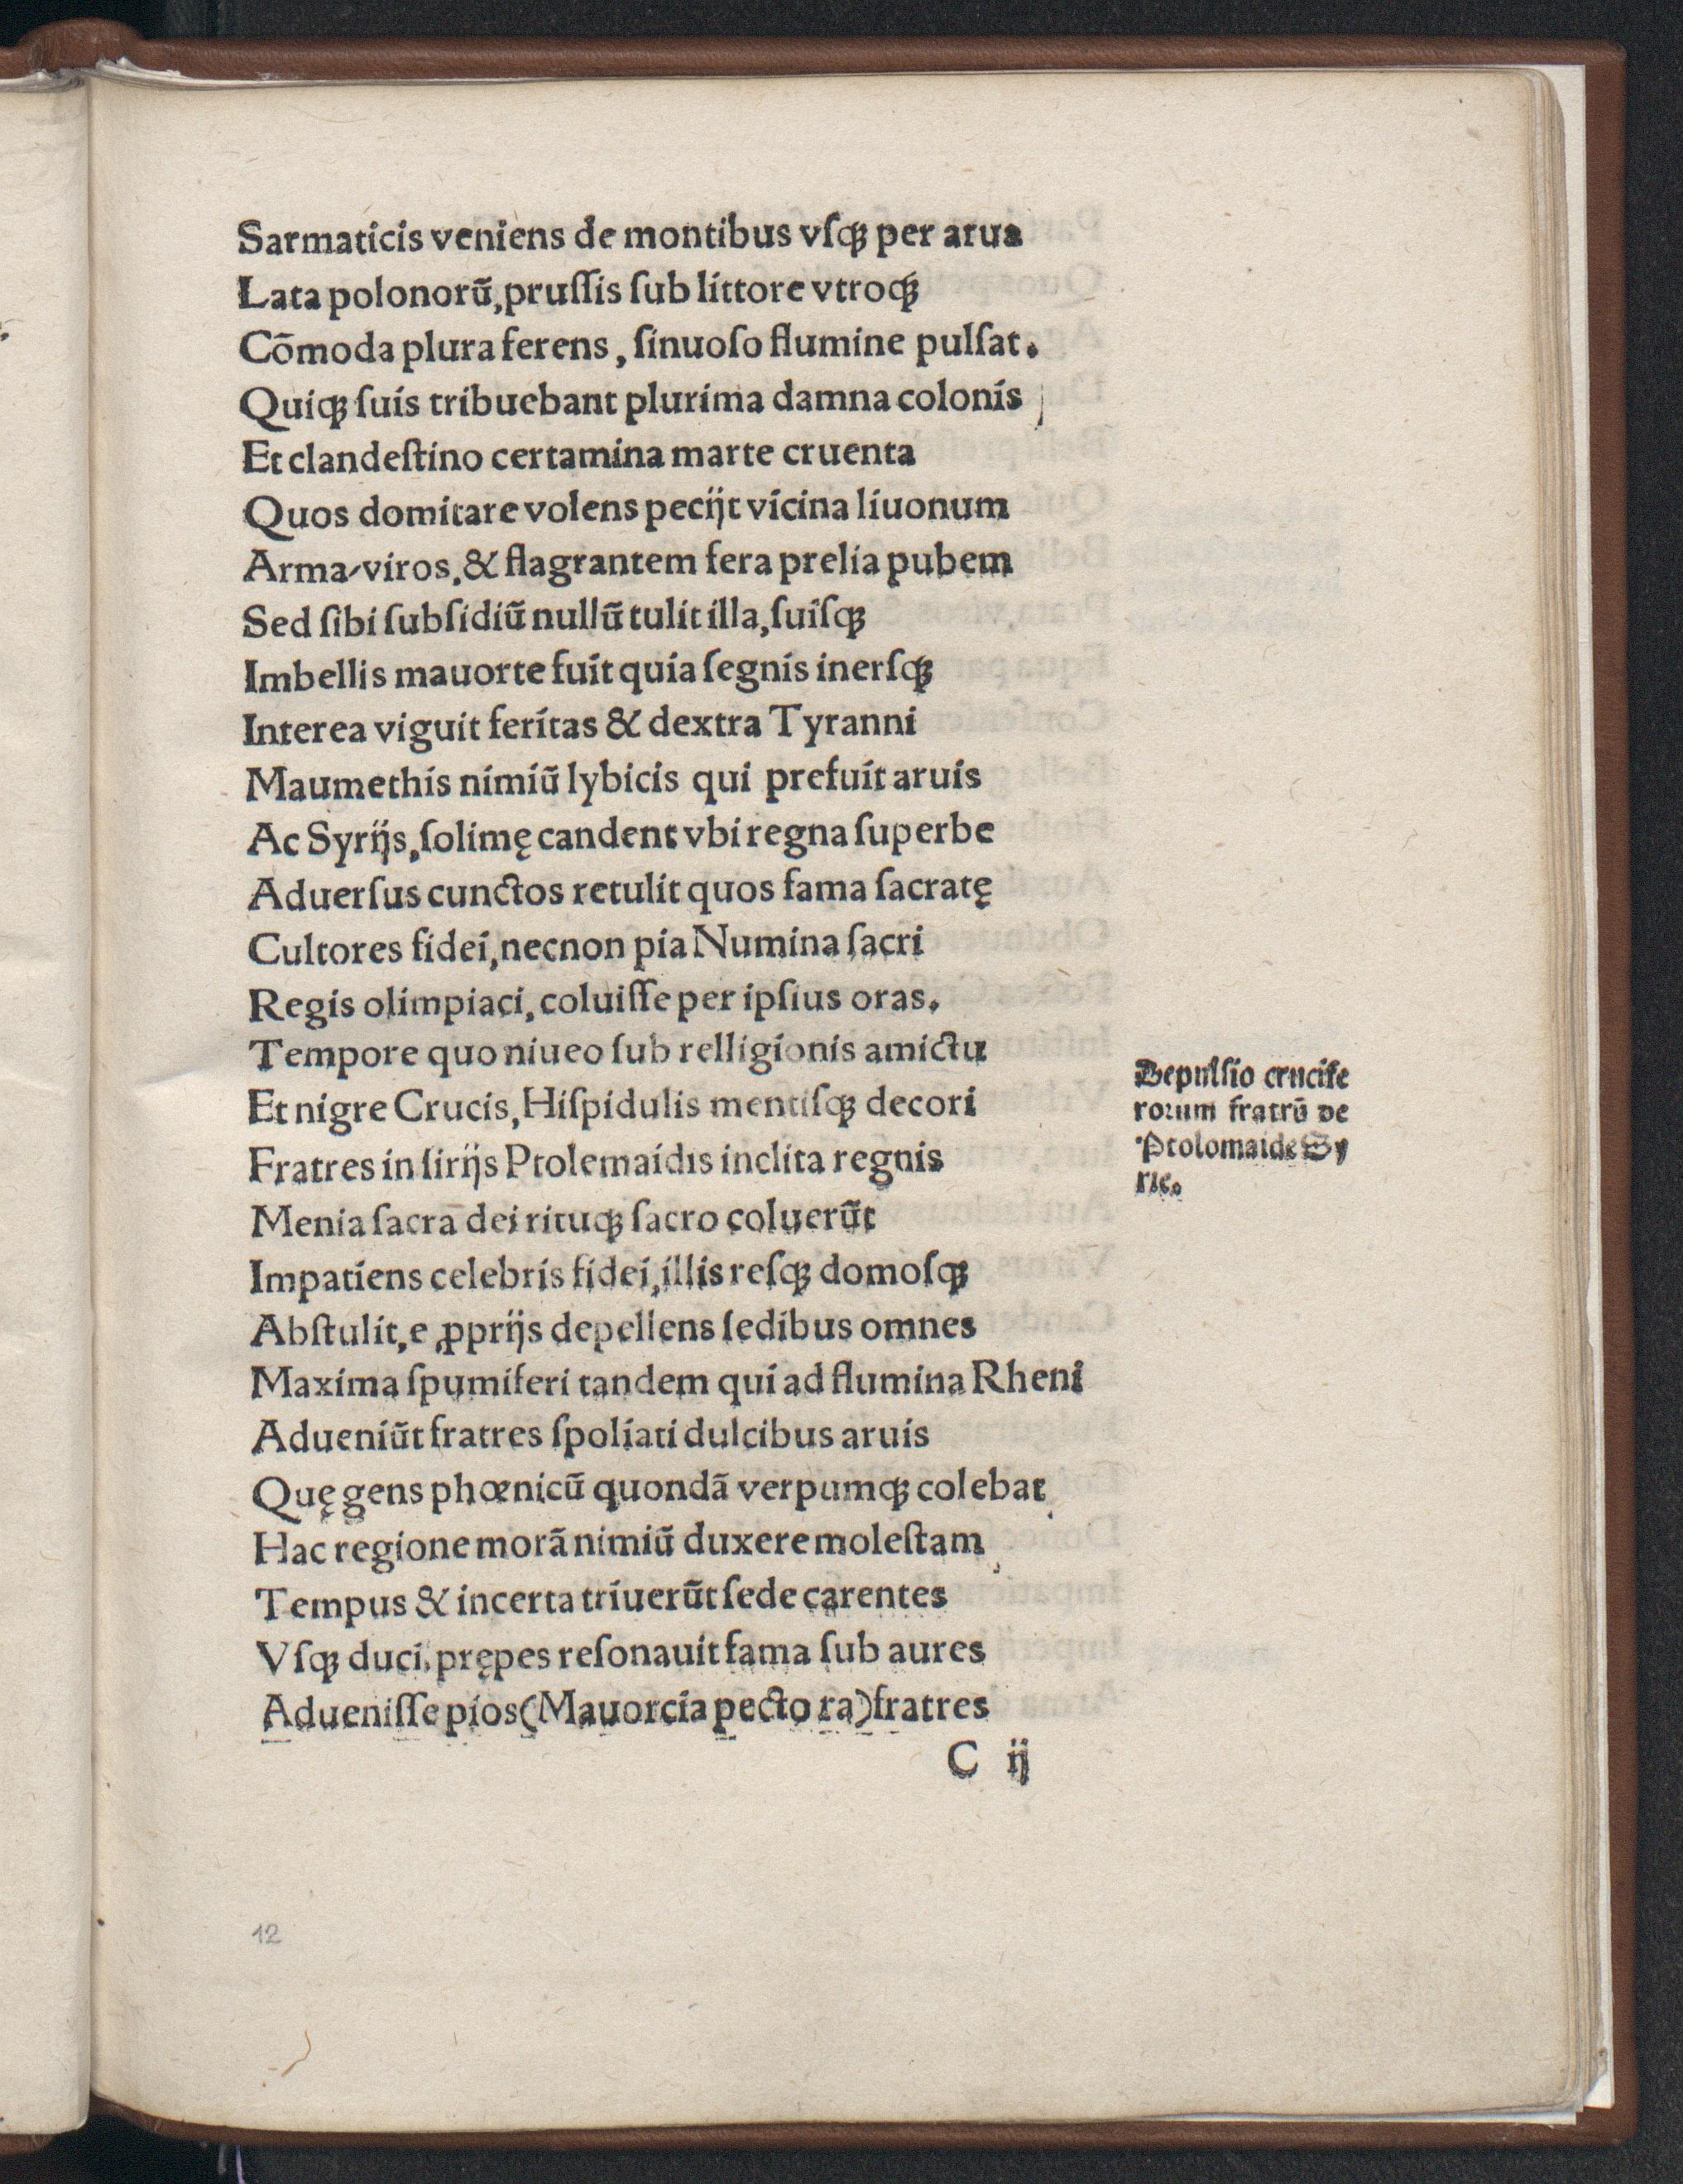 Sarmaticis veniens de montibus vſqꝫ per arua
Lata polonorū, pruſſis ſub littore vtroqꝫ
Cōmoda plura ferens, ſinuoſo flumine pulſat.
Quiqꝫ ſuis tribuebant plurima damna colonis
Et clandeſtino certamina marte cruenta
Quos domitare volens pecijt vicina liuonum
Arma/viros, & flagrantem fera prelia pubem
Sed ſibi ſubſidiū nullū tulit illa, ſuiſqꝫ
Imbellis mauorte fuit quia ſegnis inerſqꝫ
Interea viguit feritas & dextra Tyranni
Maumethis nimiū lybicis qui prefuit aruis
Ac Syrijs, ſolimę candent vbi regna ſuperbe
Aduerſus cunctos retulit quos fama ſacratę
Cultores fidei, necnon pia Numina ſacri
Regis olimpiaci, coluiſſe per ipſius oras.
Tempore quo niueo ſub relligionis amictu
Et nigre Crucis, Hiſpidulis mentiſqꝫ decori
Fratres in ſirijs Ptolemaidis inclita regnis
Menia ſacra dei rituqꝫ ſacro coluerūt
Impatiens celebris fidei, illis reſqꝫ domoſqꝫ
Abſtulit, e ꝓprijs depellens ſedibus omnes
Maxima ſpumiferi tandem qui ad flumina Rheni
Adueniūt fratres ſpoliati dulcibus aruis
Quę gens phœnicū quondā verpumqꝫ colebat
Hac regione morā nimiū duxere moleſtam
Tempus & incerta triuerūt ſede carentes
Vſqꝫ duci, prępes reſonauit fama ſub aures
Adueniſſe pios (Mauorcia pecto ra) fratres
C ij
Depulſio crucife
rorum fratrū de
Ptolomaide Sy
rie.
12